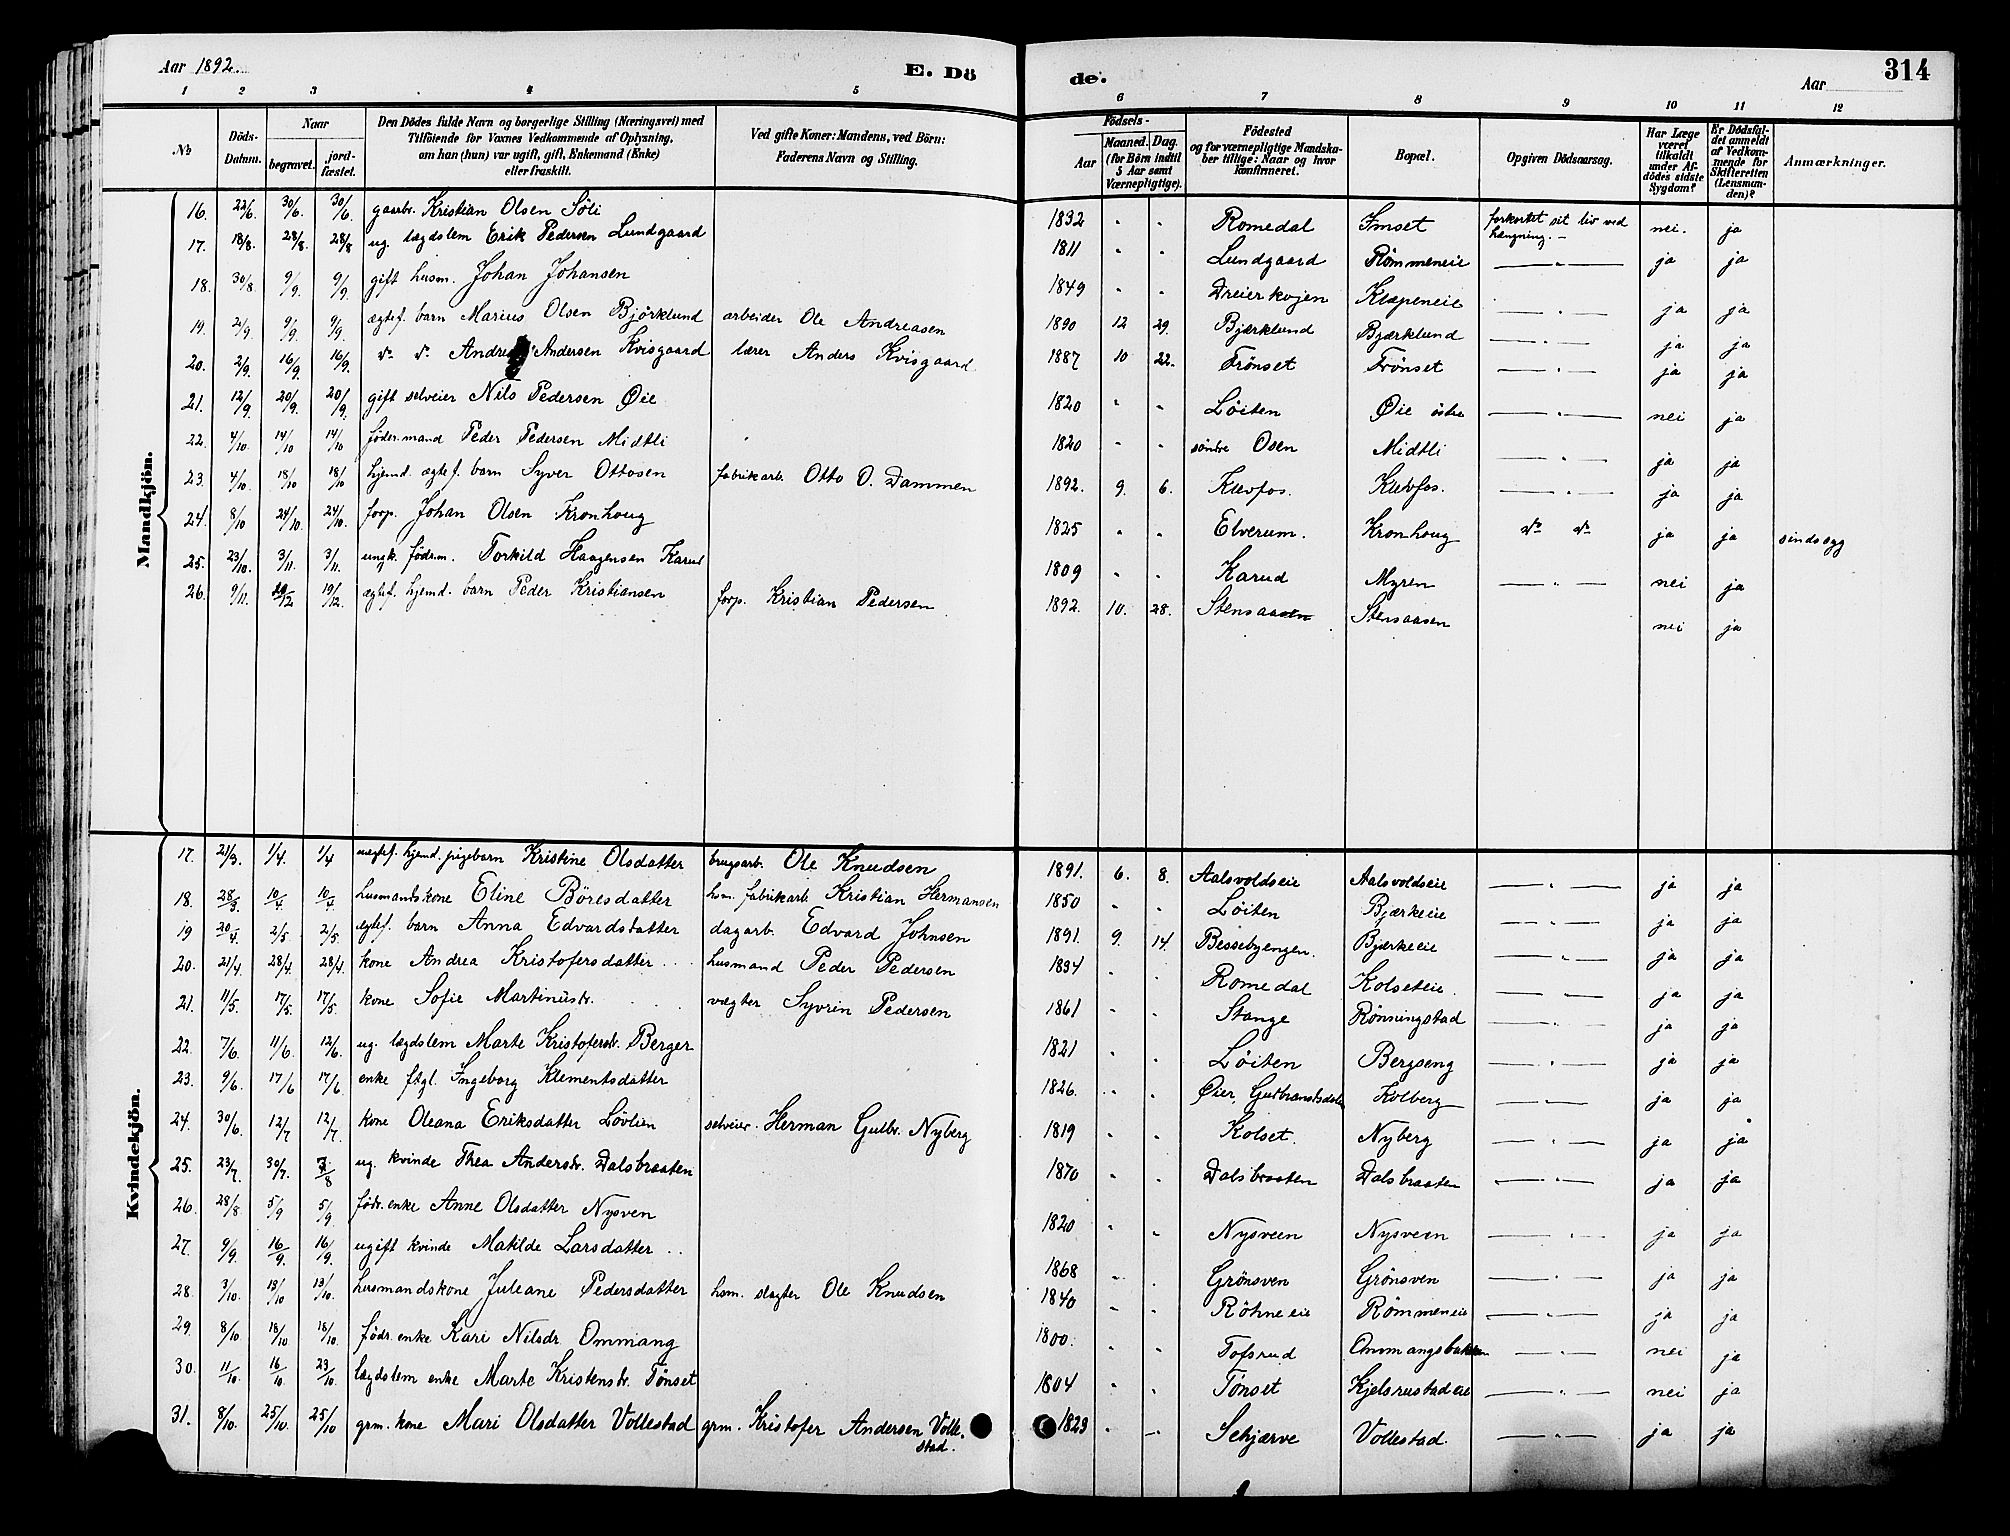 Aar 1892.
E. Dö
de.
Aar
314
1 2 3 4 5 6 7 8 9 10 11 12
No
Döds-Datum.
Naar
begravet.
jord-fæstet.
Den Dödes fulde Navn og borgerlige Stilling (Næringsvei) med
Tilföiende for Voxnes Vedkommende af Oplysning,
om han (hun) var ugift, gift, Enkemand (Enke)
eller fraskilt.
Ved gifte Koner: Mandens, ved Börn:
Faderens Navn og Stilling.
Födsels-
Aar
Maaned. Dag.
(for Börn indtil
5 Aar samt
Værnepligtige).
Födested
og for værnepligtige Mandska-
ber tillige: Naar og hvor
konfirmeret.
Bopæl.
Opgiven Dödsaarsag.
Har Læge
været
tilkaldt
under Af-
dödes sidste
Sygdom?
Er Dödsfal-
det anmeldt
af Vedkom-
mende for
Skifteretten
(Lensman-
den)?
Anmærkninger.
Mandkjön.
16. 22/6. 30/6. 30/6. gaarbr. Kristian Olsen Söli 1832 " " Romedal Imset forkortet sit liv ved hængning.— nei. ja
17. 18/8. 28/8. 28/8 ug. lægdslem Erik Pedersen Lundgaard 1811 " " Lundgaard Römmeneie — " — ja ja
18. 30/8. 9/9. 9/9. gift husm. Johan Johansen 1849 " " Dreierkojen Klæpeneie ja ja
19. 2/9. 9/9. 9/9. ægtef. barn Marius Olsen Björklund arbeider Ole Andreasen 1890 12 29. Bjærklund Bjærklund — " — ja ja
20. 2/9. 16/9. 16/9. do do Andersen Kvisgaard lærer Anders Kvisgaard 1887 10 22. Frönset Frönset — " — ja ja
21. 12/9. 20/9. 20/9. gift selveier Nils Pedersen Øie 1820 " " Löiten Øie östre — " — nei ja
22. 4/10. 14/10 14/10 föder.mand Peder Pedersen Midtli 1820 " " söndre Osen Midtli — " — ja ja
23. 4/10. 18/10 18/10 hjemd. ægtef. barn Syver Ottosen fabrikarb. Otto O. Dammen 1892. 9. 6. Klevfos. Klevfos. — " — ja ja
24. 8/10 24/10. 24/10. forp. Johan Olsen Kronhoug 1825 " " Elverum. Kronhoug do do ja ja sindssyg
25. 23/10. 3/11. 3/11. ungk. föderm. Torkild Haagensen Karud 1809 " " Karud Myren — " — nei ja
26. 9/11. 19/12 19/12. ægtef. hjemd. barn Peder Kristiansen forp. Kristian Pedersen 1892. 10. 28. Stensaasen Stensaasen nei ja
Kvindekjön.
17. 21/3. 1/4. 1/4 uægtef. hjemd. pigebarn Kristine Olsdatter brugsarb. Ole Knudsen 1891. 6. 8. Aalsvoldseie Aalsvoldseie — " — ja ja
18. 28/3. 10/4 10/4 husmandskone Eline Böresdatter hsm. fabrikarb. Kristian Hermansen 1850 " " Löiten Bjærkeeie — " — ja ja
19 20/4. 2/5 2/5. ægtef. barn Anna Edvardsdatter dagarb. Edvard Johnsen 1891. 9. 14. Bessebyengen. Bjærkeeie — " — ja ja
20. 21/4. 28/4. 28/4. kone Andrea Kristofersdatter husmand Peder Pedersen 1834 " " Romedal Kolseteie. — " — ja ja
21. 11/5. 17/5. 17/5. kone Sofie Martinusdr. vægter Syvrin Pedersen 1861 " " Stange Rønningstad — " — ja ja
22. 7/6. 11/6. 12/6. ug. lægdslem Marte Kristofersdr. Berger 1821 " " Löiten Bergseng — " — ja ja
23. 9/6. 17/6 17/6 enke ftgl. Ingeborg Klementsdatter 1826. " " Øier, Gudbrandsdalen Kolberg — " — ja ja
24. 30/6. 12/7 12/7. kone Oleana Eriksdatter Lövlien selveier. Herman Gulbr. Nyberg 1819 " " Kolset. Nyberg — " — ja ja
25. 23/7. 30/7. 7/8 ug. kvinde Thea Andersdr. Dalsbraaten 1870 " " Dalsbraaten Dalsbraaten — " — ja ja
26. 28/8 5/9 5/9. födr. enke Anne Olsdatter Nysven 1820 " " Nysveen Nysveen — " — ja ja
27. 9/9. 16/9. 16/9. ugift kvinde Matilde Larsdatter 1868 " " Grönsven Grönsven — " — ja ja
28. 3/10. 13/10 13/10. husmandskone Juleane Pedersdatter hsm. slagter Ole Knudsen 1840 " " Röhneeie Römmeneie — " — ja ja
29. 8/10 18/10 18/10. födr. enke Kari Nilsdr. Ommang 1800. " " Tofsrud Ommangsbakken — " — nei ja
30. 11/10 16/10 23/10. lægdslem enke Marte Kristensdr. Tönset 1804 " " Tönset Kjelsrustadeie — " — nei ja
31. 8/10. 25/10. 25/10 grm. kone Mari Olsdatter Vollestad grm. Kristofer Andersen Volle-stad. 1823 " " Schjærve Vollestad. — " — ja ja